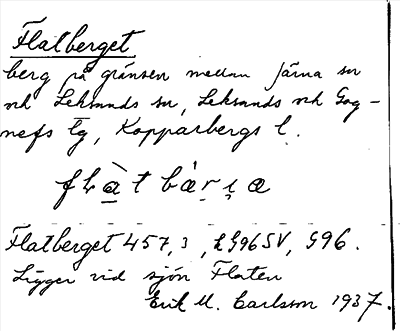 Flatberget
berg på gränsen mellan Järna sn
och Leksands sn, Leksands och Gag-
nefs tg, Kopparbergs l.
Flatberget 457,3, LG96SV, G96.
Ligger vid sjön Flaten
Erik M. Carlsson 1937.